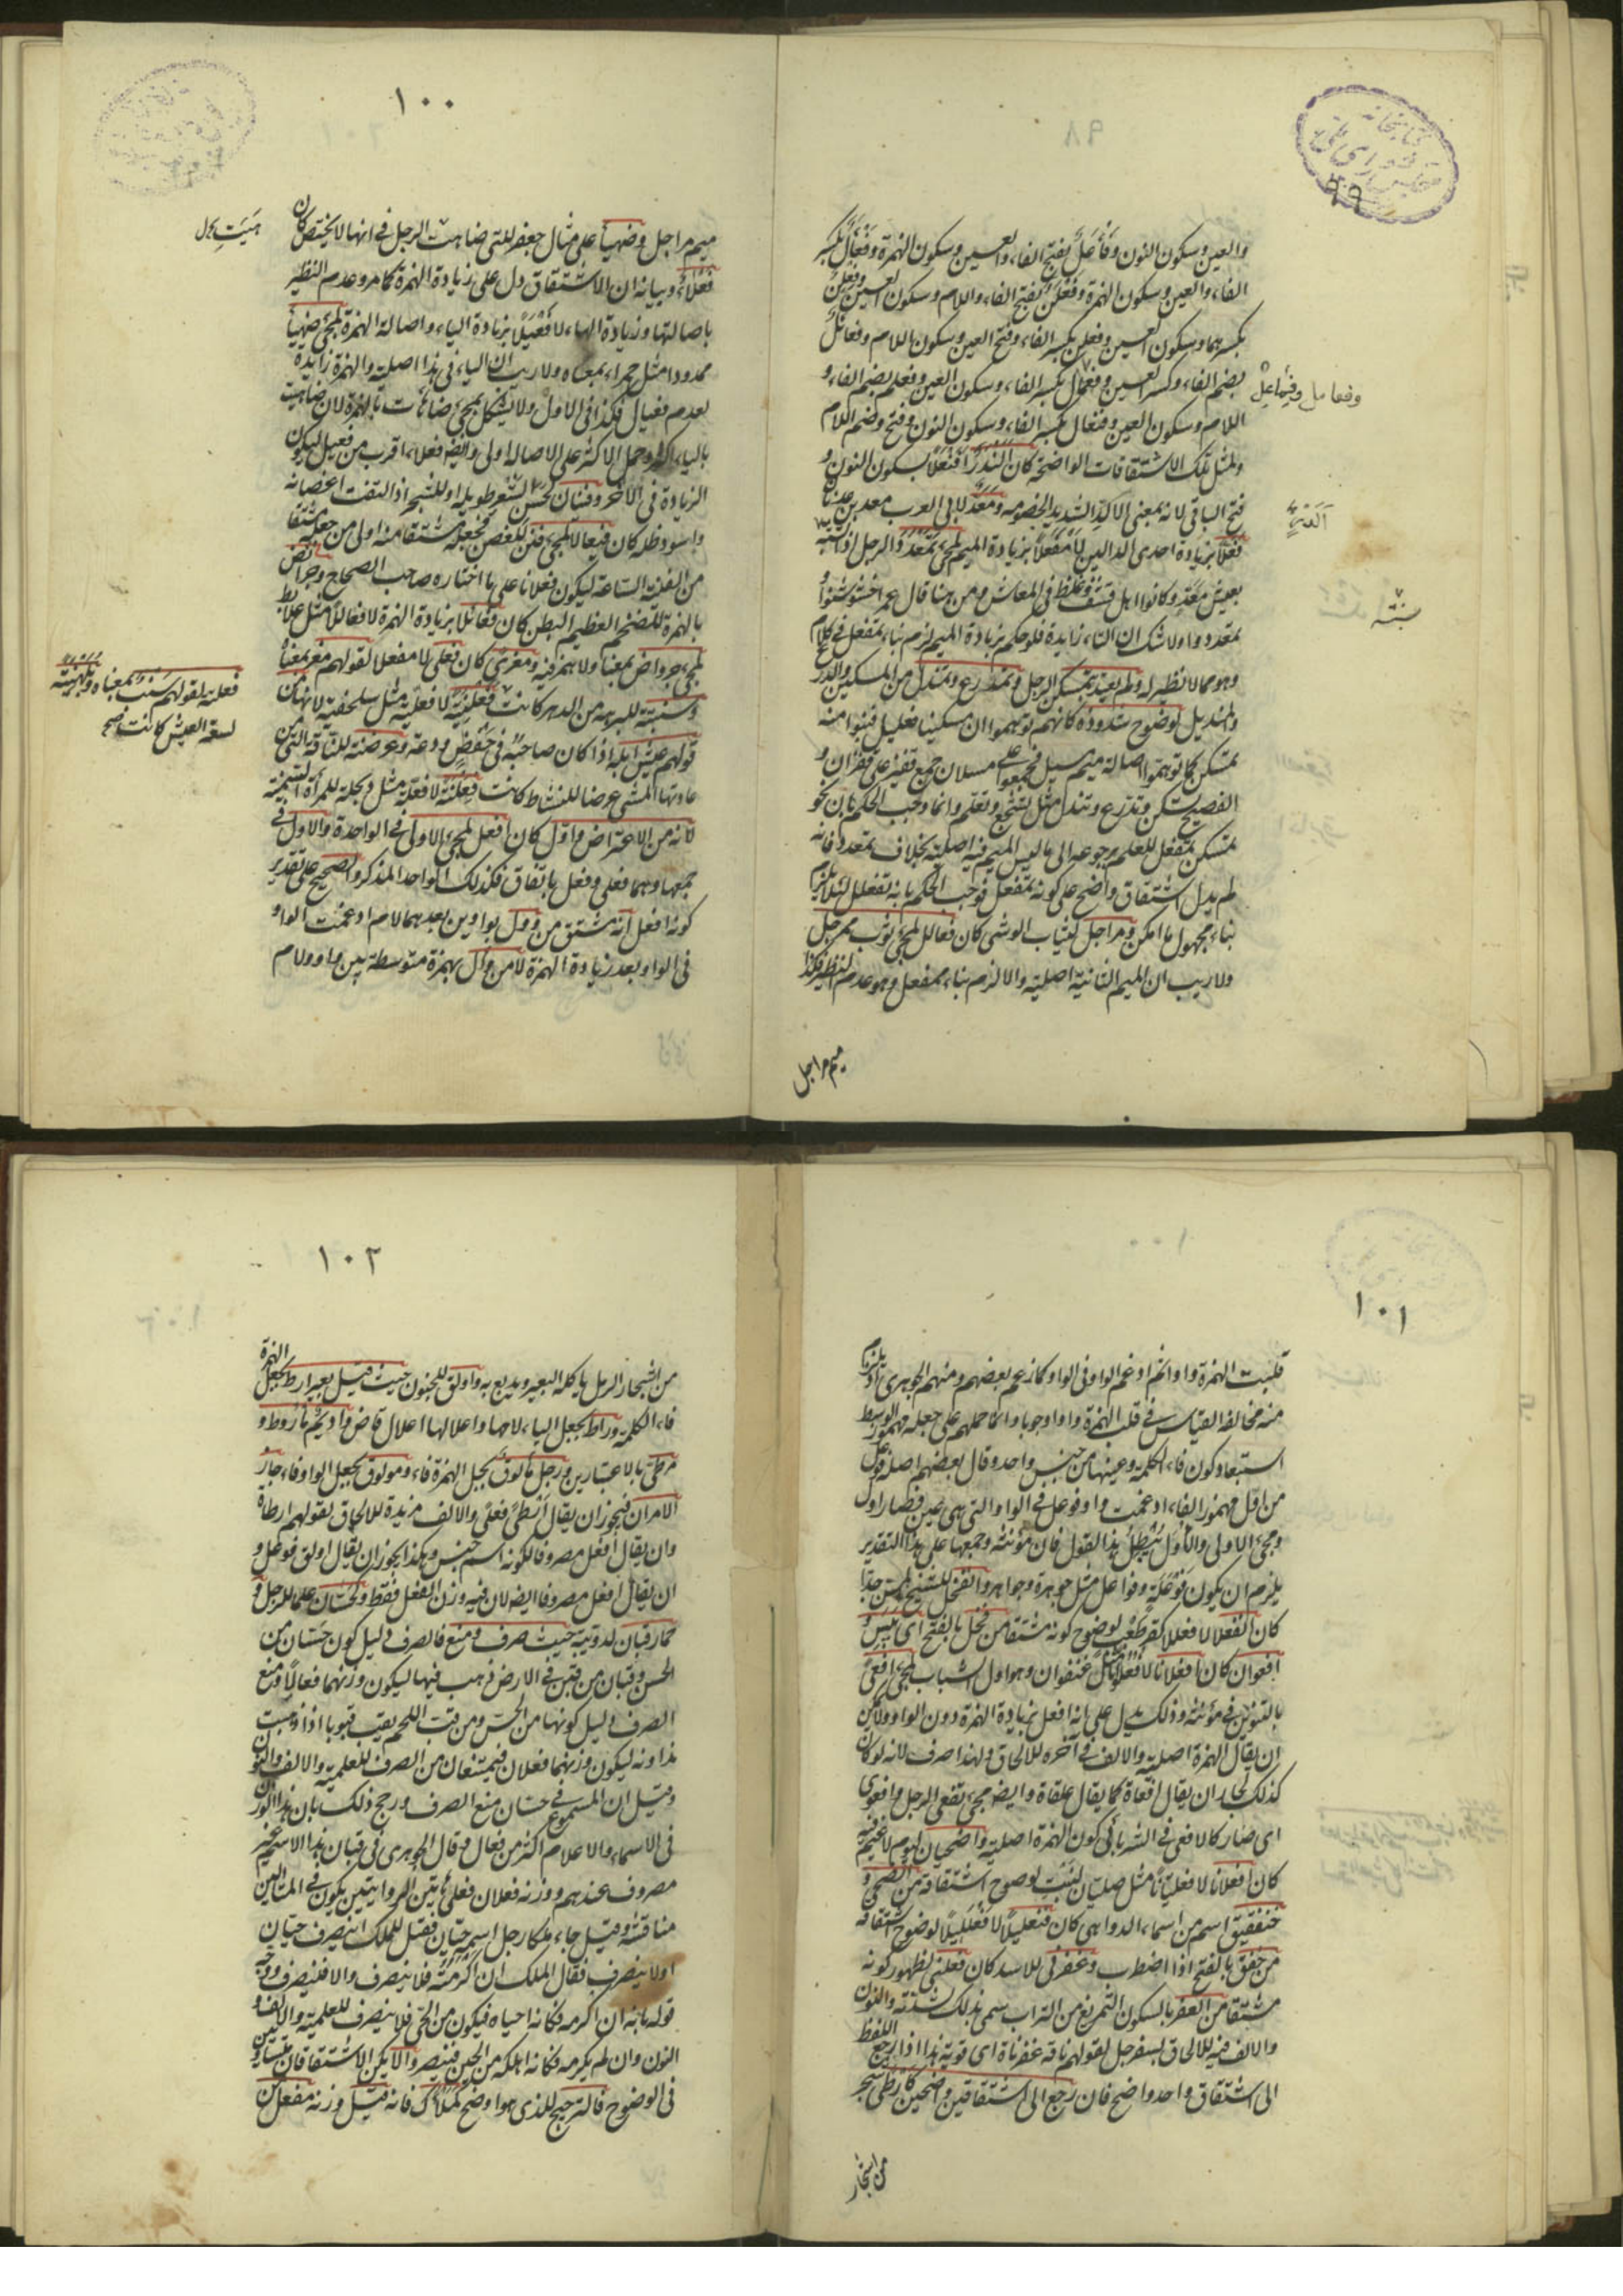 والعين وسكون النون وفأعل بفتح الفاء والعين وسكون الهمزة وفعأل بكسر
الفاء والعين وسكون الهمزة وفعلن بفتح الفاء واللام وسكون العين وفعلن
بكسرهما وسكون العين وفعلن بكسر الفاء وفتح العين وسكون اللام وفعائل
بضم الفاء وكسر العين وفعمال بكسر الفاء وسكون العين وفعلم بضم الفاء و
اللام وسكون العين وفنعال بكسر الفاء وسكون النون وفتح وضم اللام
ولمثل تلك الاشتقاقات الواضحة كان النددا افنعلا بسكون النون و
فتح الباقي لانه بمعنى الالد الشديد الخصومة ومعد لابي العرب معد بن عدنان
فعلا بزيادة احدى الدالين لا مفعلا بزيادة الميم لمجئ تمعدد الرجل اذا تشبه
بعيش معد وكانوا اهل قشف وغلظ في المعاش ومن هنا قال عمر اخشوشنوا و
تمعددوا ولا شك ان التاء زايدة فلو حكم بزيادة الميم لزم بناء تمفعل في كلامهم
وهو مما لا نظير له ولم يعتد بتمسكن الرجل وتمدرع وتمندل من المسكين والدرع
والمنديل لوضوح شذوذه كانهم توهموا ان مسكينا فعليل فبنوا منه
تمسكن كما توهموا اصالة ميم مسيل فجمعوا على مسلان جمع قفيز على قفزان و
الفصيح تسكن وتدرع وتندل مثل تشجع وتعلم وانما وجب الحكم بان نحو
تمسكن تمفعل للعلم برجوعه الى ما ليس الميم فيه اصلية بخلاف تمعدد فانه
لم يدل اشتقاق واضح على كونه تمفعل فوجب الحكم بانه تفعلل لئلا يلزم
بناء مجهول ما امكن ومراجل لثياب الوشي كان فعالل لمجئ ثوب ممرجل
ولا ريب ان الميم الثانية اصلية والا لزم بناء ممفعل وهو عدم النظير فكذا
ميم مراجل
وفعامل وفيماعل
ألندد
سنبتة
١٠٠
ميم مراجل وضهيأ على مثال جعفر للتي ضاهت الرجل في انها لا تحيض كان
فعلأ وبيانه ان الاشتقاق دل على زيادة الهمزة كما مر وعدم النظير
باصالتها وزيادة الهاء لا فعيلا بزيادة الياء واصالة الهمزة لمجئ ضهياء
ممدودا مثل حمراء بمعناه ولا ريب ان الياء في هذا اصلية والهمزة زايدة
لعدم فعيال فكذا في الاول ولا يشكل بمجئ ضاهأت بالهمزة لان ضاهيت
بالياء اكثر وحمل الاكثر على الاصالة اولى وايضا فعلاء اقرب من فعيل ليكون
الزيادة في الآخر وفينان لحسن الشعر طويله او للشجر اذا التفت اغصانه
واسود ظله كان فيعالا لمجئ فنن للغصن فجعله مشتقا منه اولى من جعله مشتقا
من الفينة الساعة ليكون فعلانا على ما اختاره صاحب الصحاح وجرائض
بالهمزة للضخم العظيم البطن كان فعائلا بزيادة الهمزة لا فعاللا مثل علابط
لمجئ جرواض بمعناه ولا همز فيه ومعزى كان فعلى لا مفعلا لقولهم معز بمعناه
وسنبتة للبرهة من الدهر كانت
قولهم عيش ابله اذا كان صاحبه في خفض ودعة وعرضنة للناقة التي من
عادتها المشي عرضا للنشاط كانت فعلنة لا فعلة مثل دبحلة للمرأة السمينة
لانه من الاعتراض واول كان افعل لمجئ الاولى في الواحدة والاول في
جمعها وهما فعلى وفعل باتفاق فكذلك الواحد المذكر والصحيح على تقدير
كونه افعل انه مشتق من وول بواوين بعدهما لام ادغمت الواو
في الواو بعد زيادة الهمزة لا من وأل بهمزة متوسطة بين واو ولام
فعلته لقولهم سنب بمعناه وبلهنية
لسعة العيش كانت صح
١٠١
قلبت الهمزة واوا ثم ادغم الواو في الواو كما زعم بعضهم ومنهم الجوهري اذ يلزم
منه مخالفة القياس في قلب الهمزة واوا وجوبا وانما حملهم على جعله مهموز الوسط
استبعاد كون فاء الكلمة وعينها من جنس واحد وقال بعضهم اصله
من اول مهموز الفاء ادغمت واو فوعل في الواو التي هي عين فصار اول
ومجئ الاولى والاول يبطل هذا القول فان مؤنثه وجمعها على هذا التقدير
يلزم ان يكون فوعلة وفواعل مثل جوهرة وجواهر وانقحل للشيخ المسن جدا
كان انفعلا لا فعللا كقرطعب لوضوح كونه مشتقا من قحل بالفتح اي يبس و
افعوان كان افعلانا لا مثل عنفوان وهو اول الشباب لمجئ افعى
بالتنوين في مؤنثه وذلك يدل على انه افعل بزيادة الهمزة دون الواو ولا يمكن
ان يقال الهمزة اصلية والالف في آخره للالحاق ولهذا صرف لانه لو كان
كذلك لجاز ان يقال افعاة كما يقال علقاة وايضا مجئ تفعى الرجل
اي صار كالافعى في الشر يأبى كون الهمزة اصلية واضحيان ليوم لا غيم فيه
كان افعلانا لا فعليانا مثل صليان لنبت لوضوح اشتقاقه من الضحى و
خنفقيق اسم من اسماء الدواهي كان فنعليلا لا فعلليلا لوضوح اشتقاقه
من خفق بالفتح اذا اضطرب وعفرنى للاسد كان فعلنى لظهور كونه
مشتقا من العفر بالسكون التمريغ من التراب سمى بذلك لشدته والنون
والالف فيه للالحاق بسفرجل لقولهم ناقة عفرناة اي قوية هذا اذا رجع اللفظ
الى اشتقاق واحد واضح فان رجع الى اشتقاقين واضحين كارطى لشجر
من اشجار
١٠٢
من اشجار الرمل يأكله البعير ويدبغ به واولق للجنون حيث قيل بعير ارط بجعل الهمزة
فاء الكلمة وراط بجعل الياء لامها واعلالها اعلال قاض واديم مأروط و
مرطي بالاعتبارين ورجل مألوق بجعل الهمزة فاء ومولوق بجعل الواو فاء جاز
الامران فيجوز ان يقال ارطى فعلى والالف مزيدة للالحاق لقولهم ارطاة
وان يقال افعل مصروفا لكونه اسم جنس وهكذا يجوز ان يقال اولق فوعل و
ان يقال افعل مصروفا ايضا لان فيه وزن الفعل فقط وكحسان علما للرجل و
حمار قبان لدويبة حيث صرف ومنع فالصرف دليل كون حسان من
الحسن وقبان من قبن في الارض ذهب فيها ليكون وزنهما فعالا ومنع
الصرف دليل كونهما من الحس ومن قب اللحم يقب قبوبا اذا ذهبت
نداوته ليكون وزنهما فعلان فيمتنعان من الصرف للعلمية والالف والنون
وقيل ان المسموع في حسان منع الصرف ورجح ذلك بان هذا الوزن
في الاسماء والاعلام اكثر من فعال وقال الجوهري في قبان هذا الاسم غير
مصروف عندهم ووزنه فعلان
مناقشة وقيل جاء ملكا رجل اسمه حيان فقيل للملك اينصرف حيان
او لا ينصرف فقال الملك ان اكرمته فلا ينصرف والا فلينصرف ووجه
قوله بانه ان اكرمه فكانه احياه فيكون من الحي فلا ينصرف للعلمية والالف و
النون وان لم يكرمه فكانه اهلكه من الحين فينصرف والا يكن الاشتقاقان متساويين
في الوضوح فالترجيح للذي هو اوضح كملأك فانه قيل وزنه مفعل من